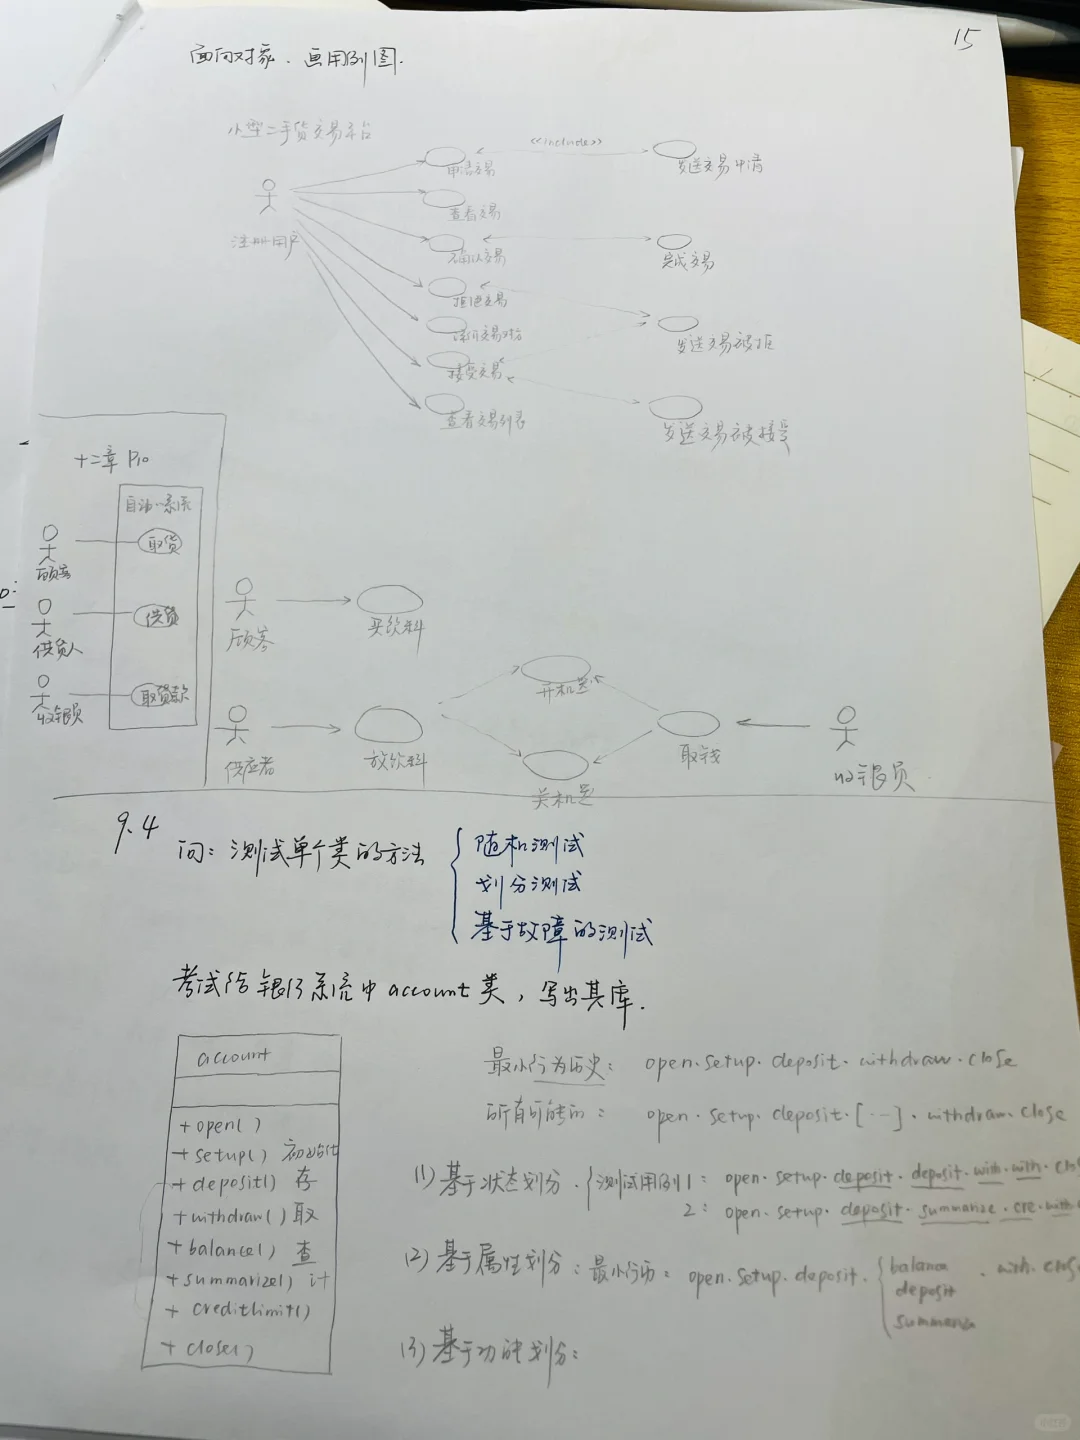 15
面向对象、画用例图.
小型二手货交易平台
<<include>>
申请交易
发送交易申请
查看交易
注册用户
确认交易
完成交易
拒绝交易
发送交易被拒
交易对方
接受交易
查看交易列表
发送交易被接受
十二章 P10
自动…系统
取货
顾客
供货
供货人
取货款
收银员
顾客
买饮料
开机器
供应者
放饮料
取钱
收银员
关机器
9.4
问：测试单个类的方法
随机测试
划分测试
基于故障的测试
考试给银行系统中account类，写出其库.
account
+open()
+setup() 初始化
+deposit() 存
+withdraw() 取
+balance() 查
+summarize() 计
+ creditlimit()
+ close()
最小行为历史： open·setup·deposit·withdraw·close
所有可能的： open·setup·deposit·[…]·withdraw·close
(1)基于状态划分·{测试用例1： open·setup·deposit·deposit·with·with·clo
2： open·setup·deposit·summarize·cre·with
(2)基于属性划分：最小行为： open·setup·deposit·{balance deposit summariz·with·close
(3)基于功能划分：